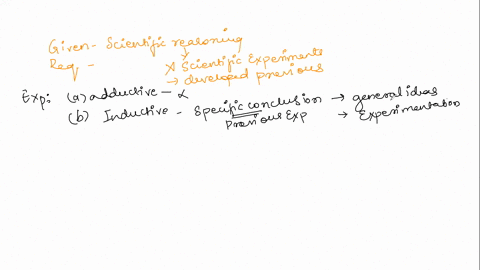 Given- Scientific reasoning
Req - x Scientific Experiments
→ developed previous
Exp: (a) adductive - x
(b) Inductive - Specific conclusion → general ideas
Previous Exp → Experimentation